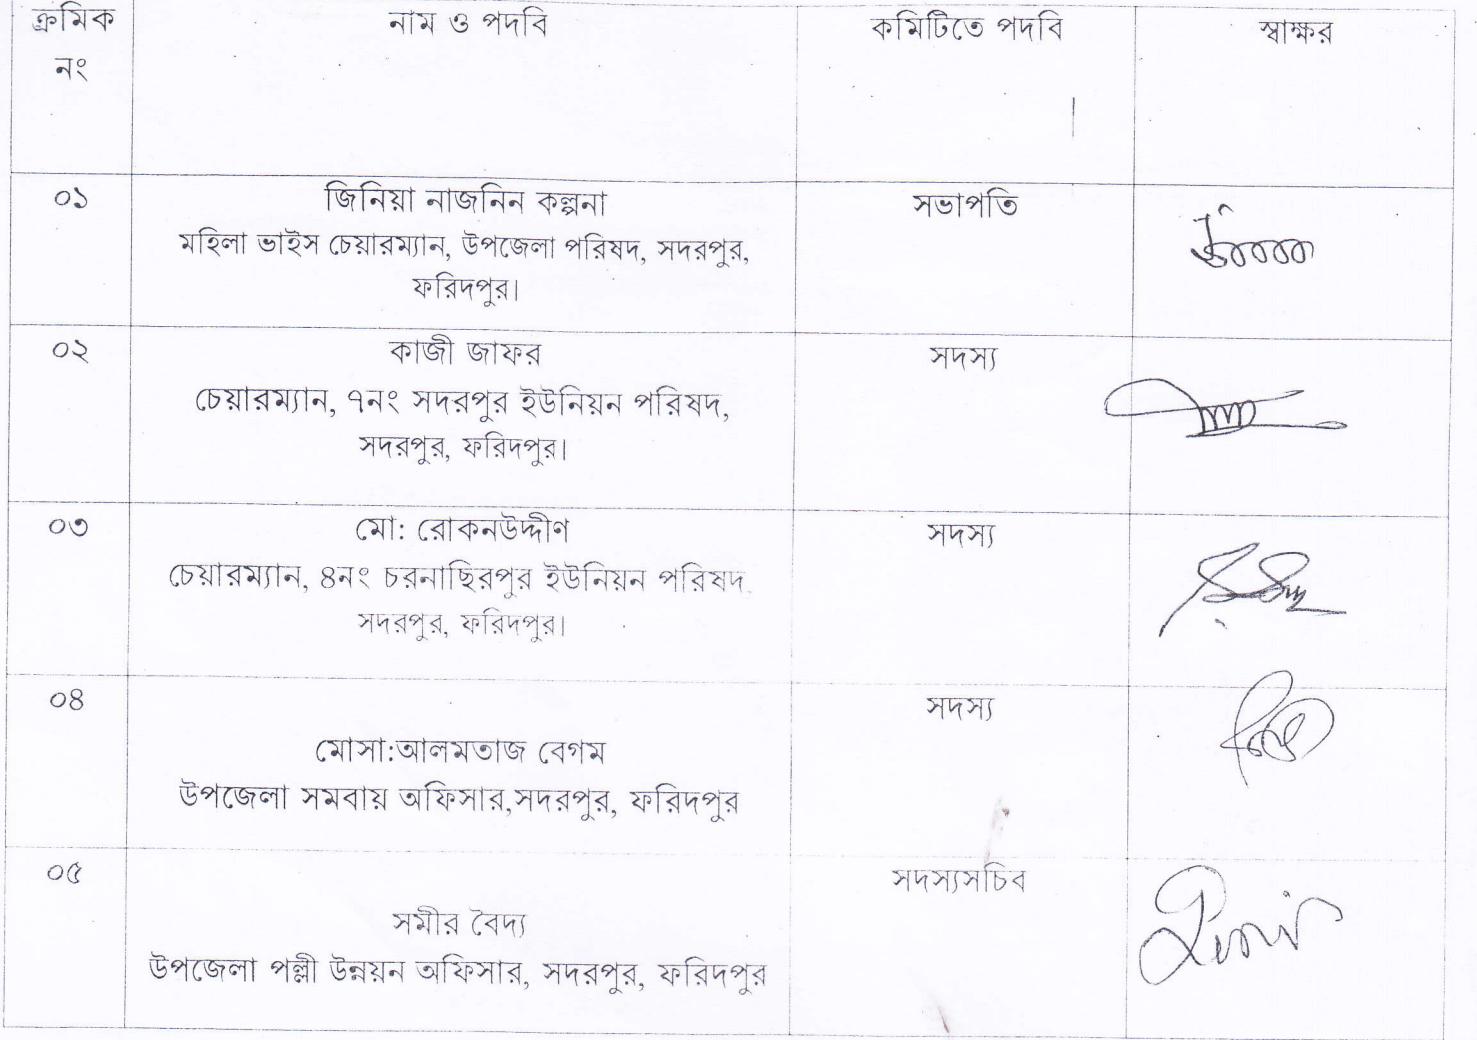 ক্রমিক নাম ও পদবি কমিটিতে পদবি স্বাক্ষর
নং
০১ জিনিয়া নাজনিন কল্পনা সভাপতি
মহিলা ভাইস চেয়ারম্যান, উপজেলা পরিষদ, সদরপুর,
ফরিদপুর।
০২ কাজী জাফর সদস্য
চেয়ারম্যান, ৭নং সদরপুর ইউনিয়ন পরিষদ,
সদরপুর, ফরিদপুর।
০৩ মো: রোকনউদ্দীণ সদস্য
চেয়ারম্যান, ৪নং চরনাছিরপুর ইউনিয়ন পরিষদ,
সদরপুর, ফরিদপুর।
০৪ সদস্য
মোসা:আলমতাজ বেগম
উপজেলা সমবায় অফিসার,সদরপুর, ফরিদপুর
০৫ সদস্যসচিব
সমীর বৈদ্য
উপজেলা পল্লী উন্নয়ন অফিসার, সদরপুর, ফরিদপুর